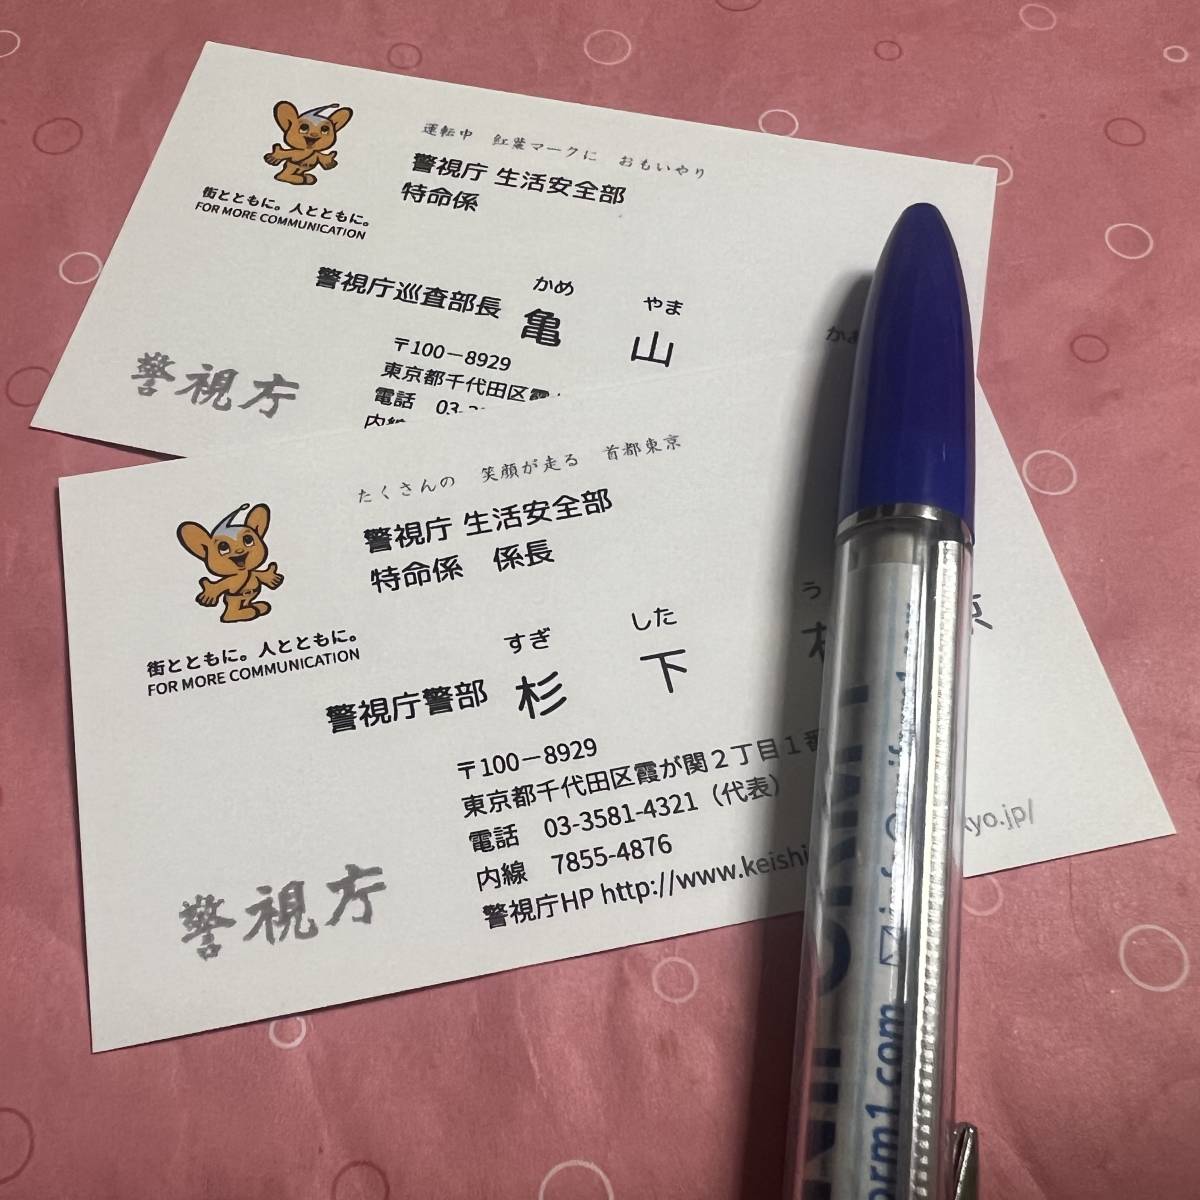 運転中 紅葉マークに おもいやり
警視庁 生活安全部
特命係
街とともに。人とともに。
FOR MORE COMMUNICATION
かめ やま
警視庁巡査部長 亀 山
〒100－8929
東京都千代田区霞
電話 03-
内線
警視庁
たくさんの 笑顔が走る 首都東京
警視庁 生活安全部
特命係 係長
街とともに。人とともに。
FOR MORE COMMUNICATION
すぎ した う
警視庁警部 杉 下
〒100－8929
東京都千代田区霞が関２丁目１番
電話 03-3581-4321（代表）
内線 7855-4876
警視庁HP http://www.keishi
yo.jp/
警視庁
orm1.com